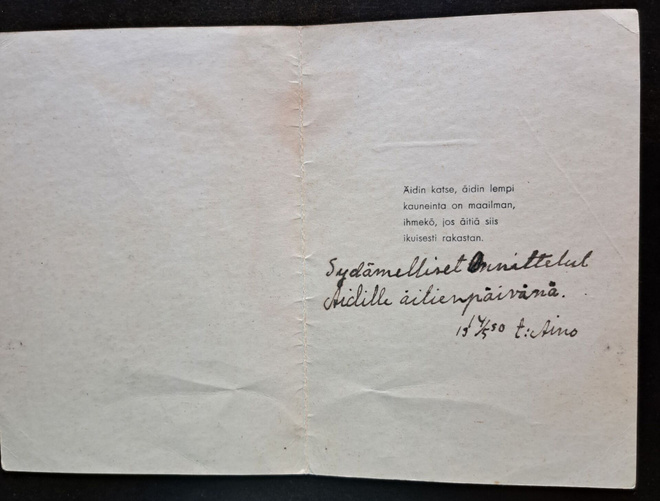 Äidin katse, äidin lempi
kauneinta on maailman,
ihmekö, jos äitiä siis
ikuisesti rakastan.
Sydämelliset Onnittelut
Äidille äitienpäivänä.
t: Aino